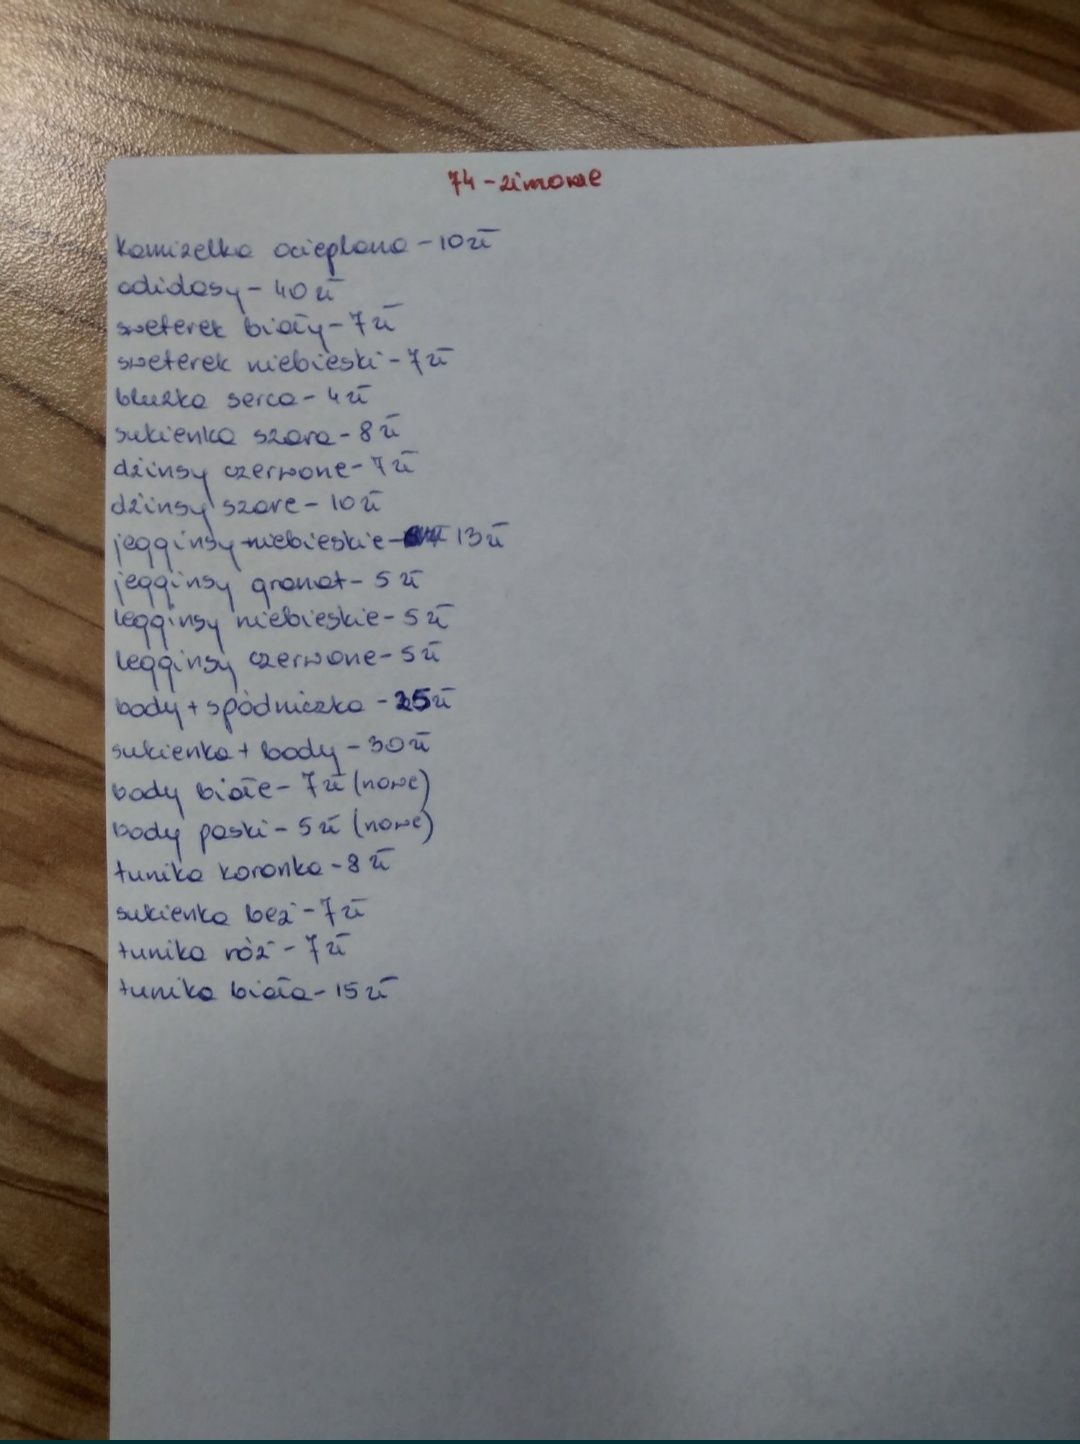 74 - zimowe
kamizelka ocieplana - 10 zł
adidasy - 40 zł
sweterek biały - 7 zł
sweterek niebieski - 7 zł
bluzka serca - 4 zł
sukienka szara - 8 zł
dżinsy czerwone - 7 zł
dżinsy szare - 10 zł
jegginsy niebieskie - 13 zł
jegginsy granat - 5 zł
legginsy niebieskie - 5 zł
legginsy czerwone - 5 zł
body + spódniczka - 25 zł
sukienka + body - 30 zł
body białe - 7 zł (nowe)
body paski - 5 zł (nowe)
tunika koronka - 8 zł
sukienka beż - 7 zł
tunika róż - 7 zł
tunika biała - 15 zł